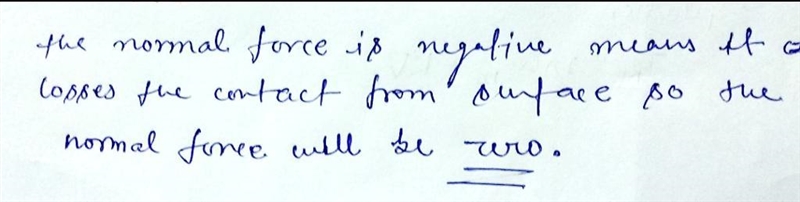 the normal force is negative means it
losses the contact from surface so the
normal force will be zero.